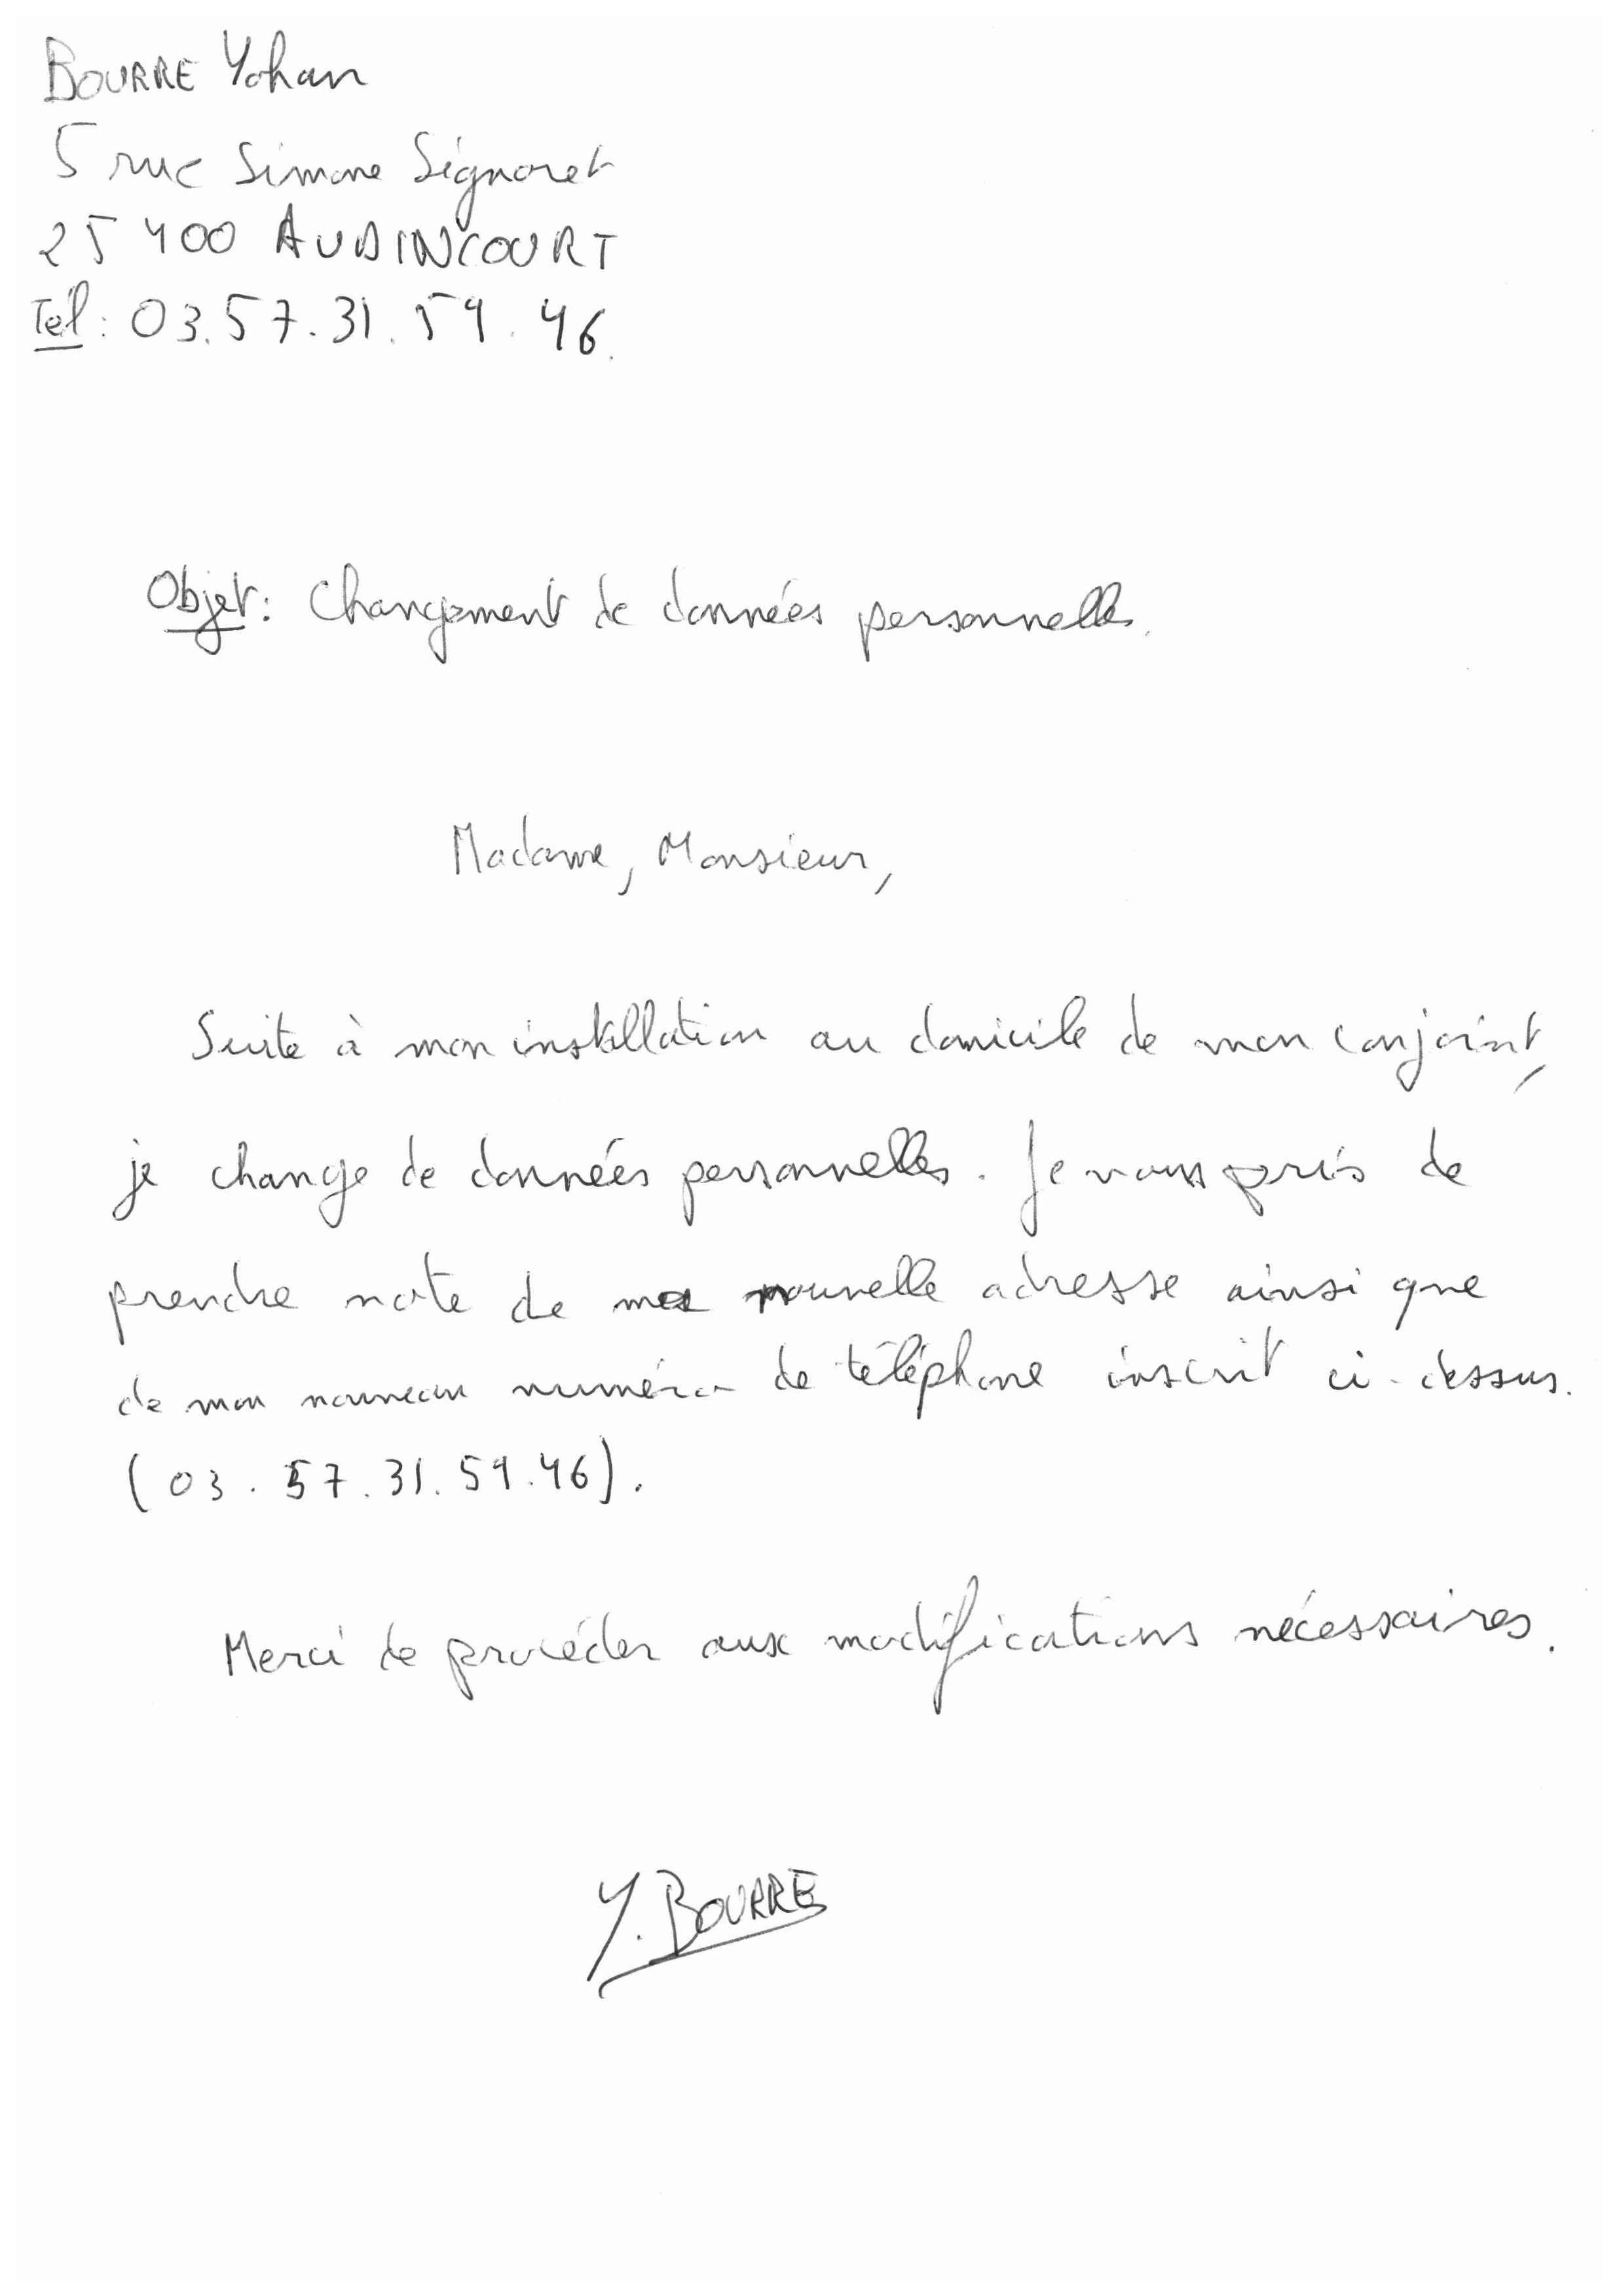 BOURRE Yohan
5 rue Simone Signoret
25400 AUDINCOURT
Tél : 03.57.31.59.46.
Objet : Changement de données personnelles.
Madame, Monsieur,
Suite à mon installation au domicile de mon conjoint,
je change de données personnelles. Je vous pris de
prendre note de ma nouvelle adresse ainsi que
de mon nouveau numéro de téléphone inscrit ci-dessus.
(03.57.31.59.46).
Merci de procéder aux modifications nécessaires.
Y. BOURRE